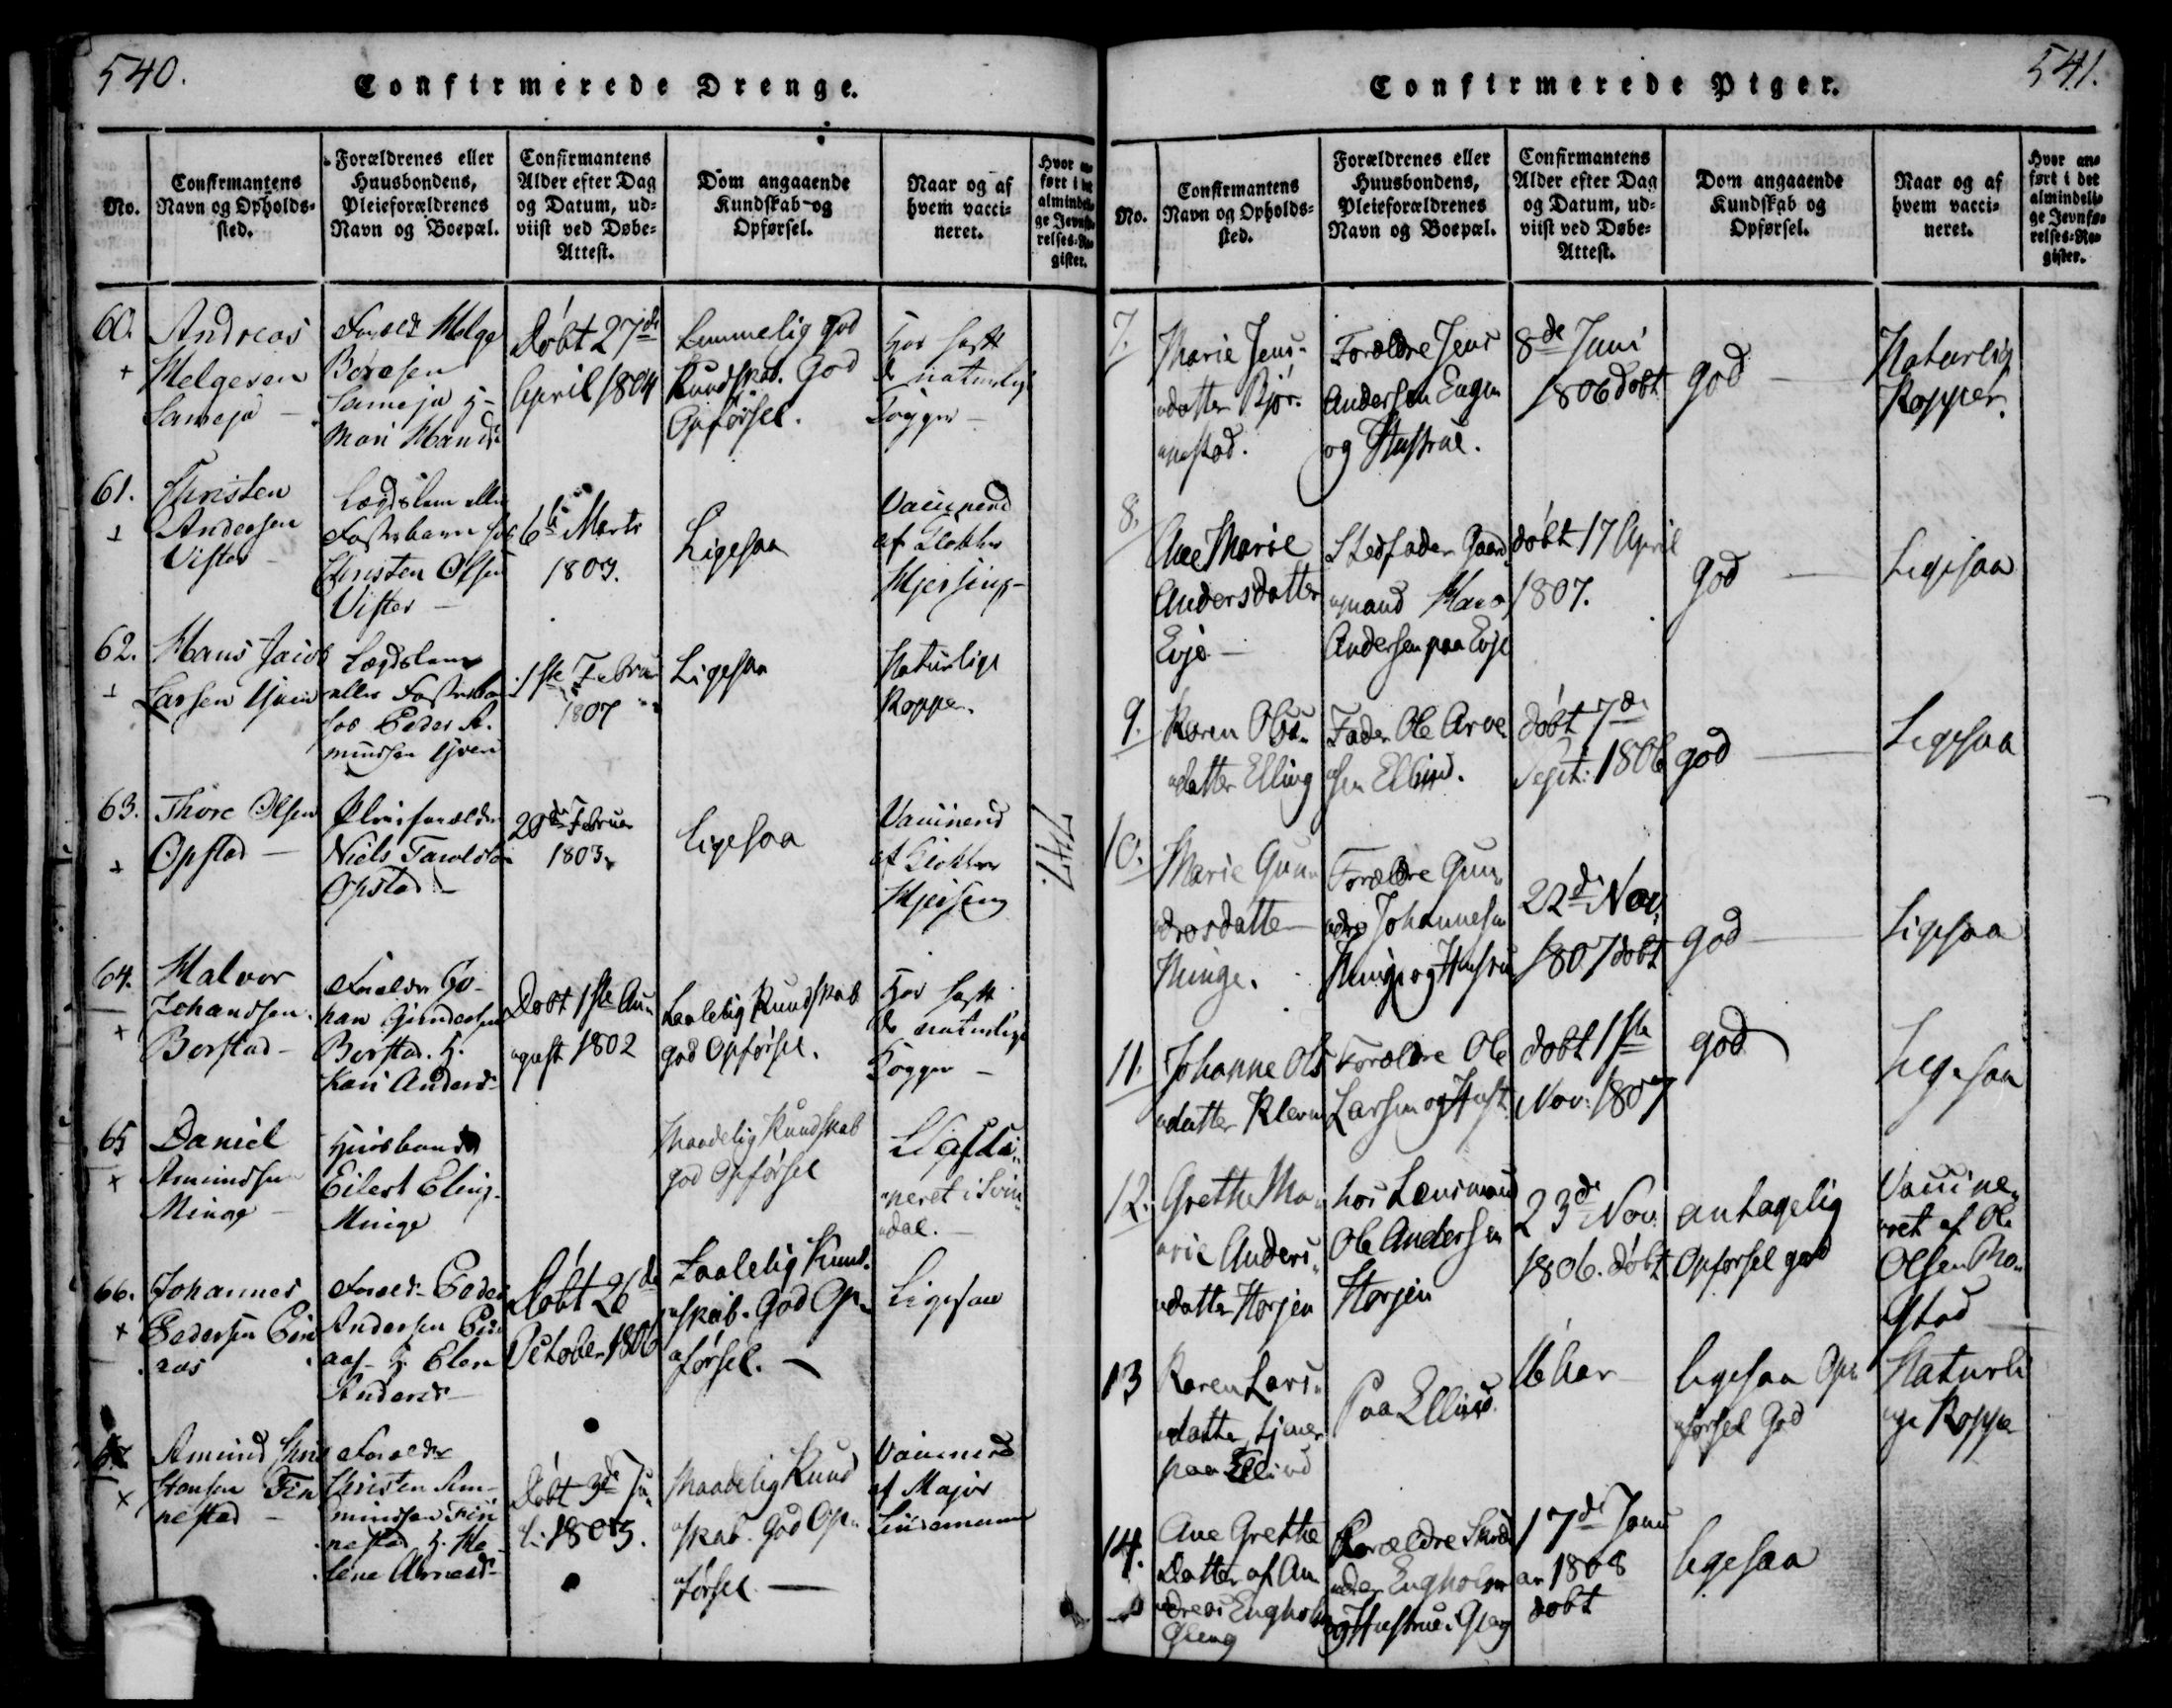 540.
Confirmerede Drenge.
No.
Confirmantens
Navn og Opholds-
sted.
Forældrenes eller
Huusbondens,
Pleieforældrenes
Navn og Boepæl.
Confirmantens
Alder efter Dag
og Datum, ud-
viist ved Døbe-
Attest.
Dom angaaende
Kundskab og
Opførsel.
Naar og af
hvem vacci-
neret.
Hvor an-
ført i det
almindeli-
ge Jevnfø-
relses-Re-
gister.
60.
Andreas
Helgesen
Forældr Helge
Børesen
Døbt 27de
April 1804
Temmelig god
Kundskab. God
Opførsel.
Har havt
de naturlige
Kopper
61.
Christen
Andersen
Vister
Lægdslem eller
Fosterbarn hos
Christen Olsen
Vister
6te Marts
1803.
Ligesaa
Vaccinered
af Klokker
62.
Hans Jacob
Larsen
Lægdslem
eller Fosterbarn
hos Peder A-
mundsen
1ste Februar
1807
Ligesaa
Naturlige
Kopper.
63.
Thore Olsen
Opstad
Pleieforældre
Niels
Opstad
20de Februar
1803
ligesaa
Vaccinered
af Klokker
747.
64.
Halvor
Johansen
Borstad
Forældre Jo-
han Gundersen
Borstad. H.
Kari Andersd
Døbt 1ste Au-
gust 1802
Taalelig Kundskab
god Opførsel.
Har havt
de naturlige
Kopper
65
Daniel
Amundsen
Minge
Huusbonde
Eilert Eling-
Minge
Maadelig Kundskab
god Opførsel
neret i Svin-
dal.
66.
Johannes
Pedersen
Forældr Peder
Andersen
H. Elen
Andersd
Døbt 26de
October 1806
Taalelig Kund-
skab. God Op-
førsel.
Ligesaa
67
Amund Chri-
stensen Fin-
nestad
Forældr
Christen Am-
mundsen Fin-
nestad H. He-
lene Arnesd
Døbt 3de Ju-
li 1805.
Maadelig Kund
skab. God Op-
førsel
Vaccinered
af Major
541.
Confirmerede Piger.
No.
Confirmantens
Navn og Opholds-
sted.
Forældrenes eller
Huusbondens,
Pleieforældrenes
Navn og Boepæl.
Confirmantens
Alder efter Dag
og Datum, ud-
viist ved Døbe-
Attest.
Dom angaaende
Kundskab og
Opførsel.
Naar og af
hvem vacci-
neret.
Hvor an-
ført i det
almindeli-
ge Jevnfø-
relses-Re-
gister.
7.
Marie Jens-
datter Bjør-
nestad.
Forældre Jens
Andersen Engen
og Hustrue.
8de Juni
1806 døbt
god
Naturlig
Kopper.
8.
Ane Marie
Andersdatter
Evje
Stedfader Gaard-
mand Hans
Andersen paa Evje
døbt 17 April
1807.
god
Ligesaa
9.
Karen Ols-
datter Elling
Fader Ole Arve-
sen
døbt 7de
Sept: 1806
god
Ligesaa
10.
Marie Gun-
dersdatter
Minge.
Forældre Gun-
der Johannesen
Minge og Hustru
22de Nov.
1807 døbt
god
Ligesaa
11.
Johanne Ols
datter
Forældre Ole
Larsen og Hust.
døbt 1ste
Nov: 1807
god
Ligesaa
12.
Grethe Ma-
rie Anders-
datter Torjen
hos Lensmand
Ole Andersen
Torjen
23de Nov.
1806. døbt
antagelig
Opførsel god
Vaccine-
ret af Ole
Olsen
13
Karen Lars-
datter, tjener
paa
Paa
16 Aar
ligesaa Op-
førsel God
Naturli
ge Kopper
14.
Ane Grethe
Datter af An-
dreas Engholm
Forældre
Engholm
og Hustrue
17de Janu
ar 1808
døbt
ligesaa